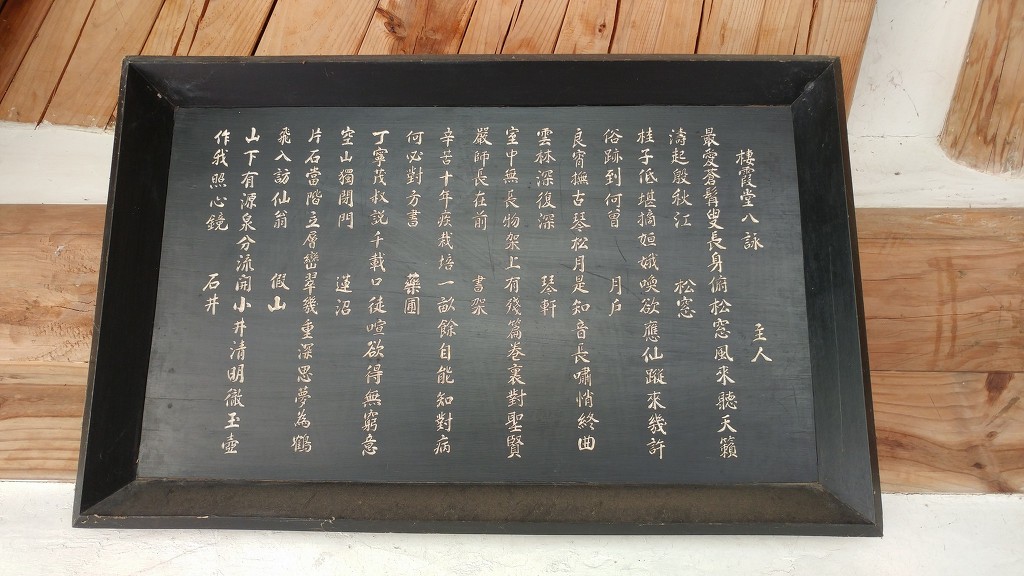 棲霞堂八詠 主人
最愛蒼髥叟長身俯松窓風來聽天籟
濤起殷秋江 松窓
桂子低堪摘姮娥喚欲應仙蹤來幾許
俗跡到何曽 月戶
良宵撫古琴松月是知音長嘯悄終曲
雲林深復深 琴軒
室中無長物架上有殘篇卷裏對聖賢
嚴師長在前 書架
辛苦十年疾栽培一畝餘自能知對病
何必對方書 藥圃
丁寧茂叔說千載口徒喧欲得無窮意
空山獨閉門 蓮沼
片石當階立層巒翠幾重深思夢為鶴
飛入訪仙翁 假山
山下有源泉分流開小井清明徹玉壺
作我照心鏡 石井